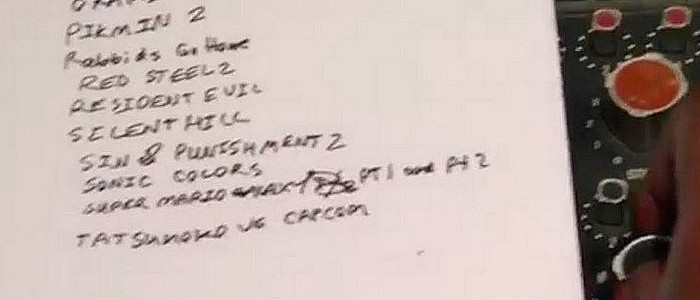 PIKMIN 2
Rabbids Go Home
RED STEEL 2
RESIDENT EVIL
SILENT HILL
SIN & PUNISHMENT 2
SONIC COLORS
SUPER MARIO GALAXY PT 1 and Pt 2
TATSUNOKO VS CAPCOM